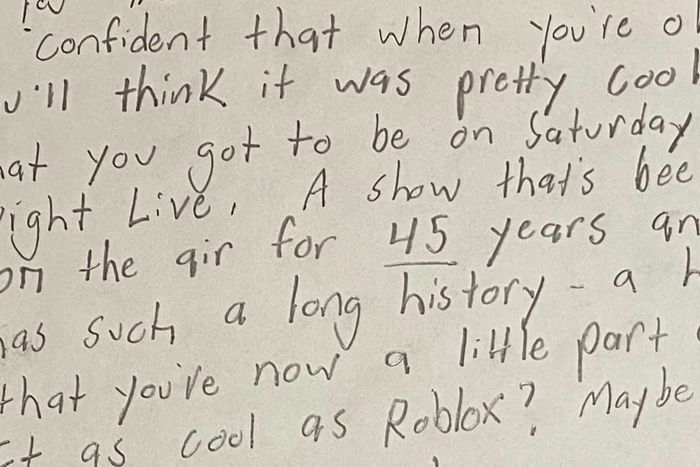 confident that when you're
think it was pretty cool
you got to be on Saturday
Live, A show that's
the air for 45 years
such a long history - a
that you're now a little part
as cool as Roblox? Maybe